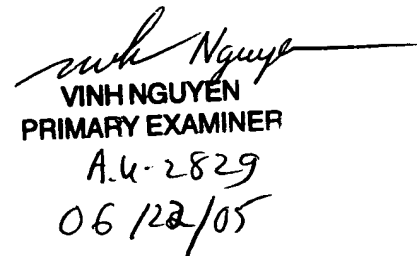 Vinh Nguyen
VINH NGUYEN
PRIMARY EXAMINER
A.U. 2829
06/22/05